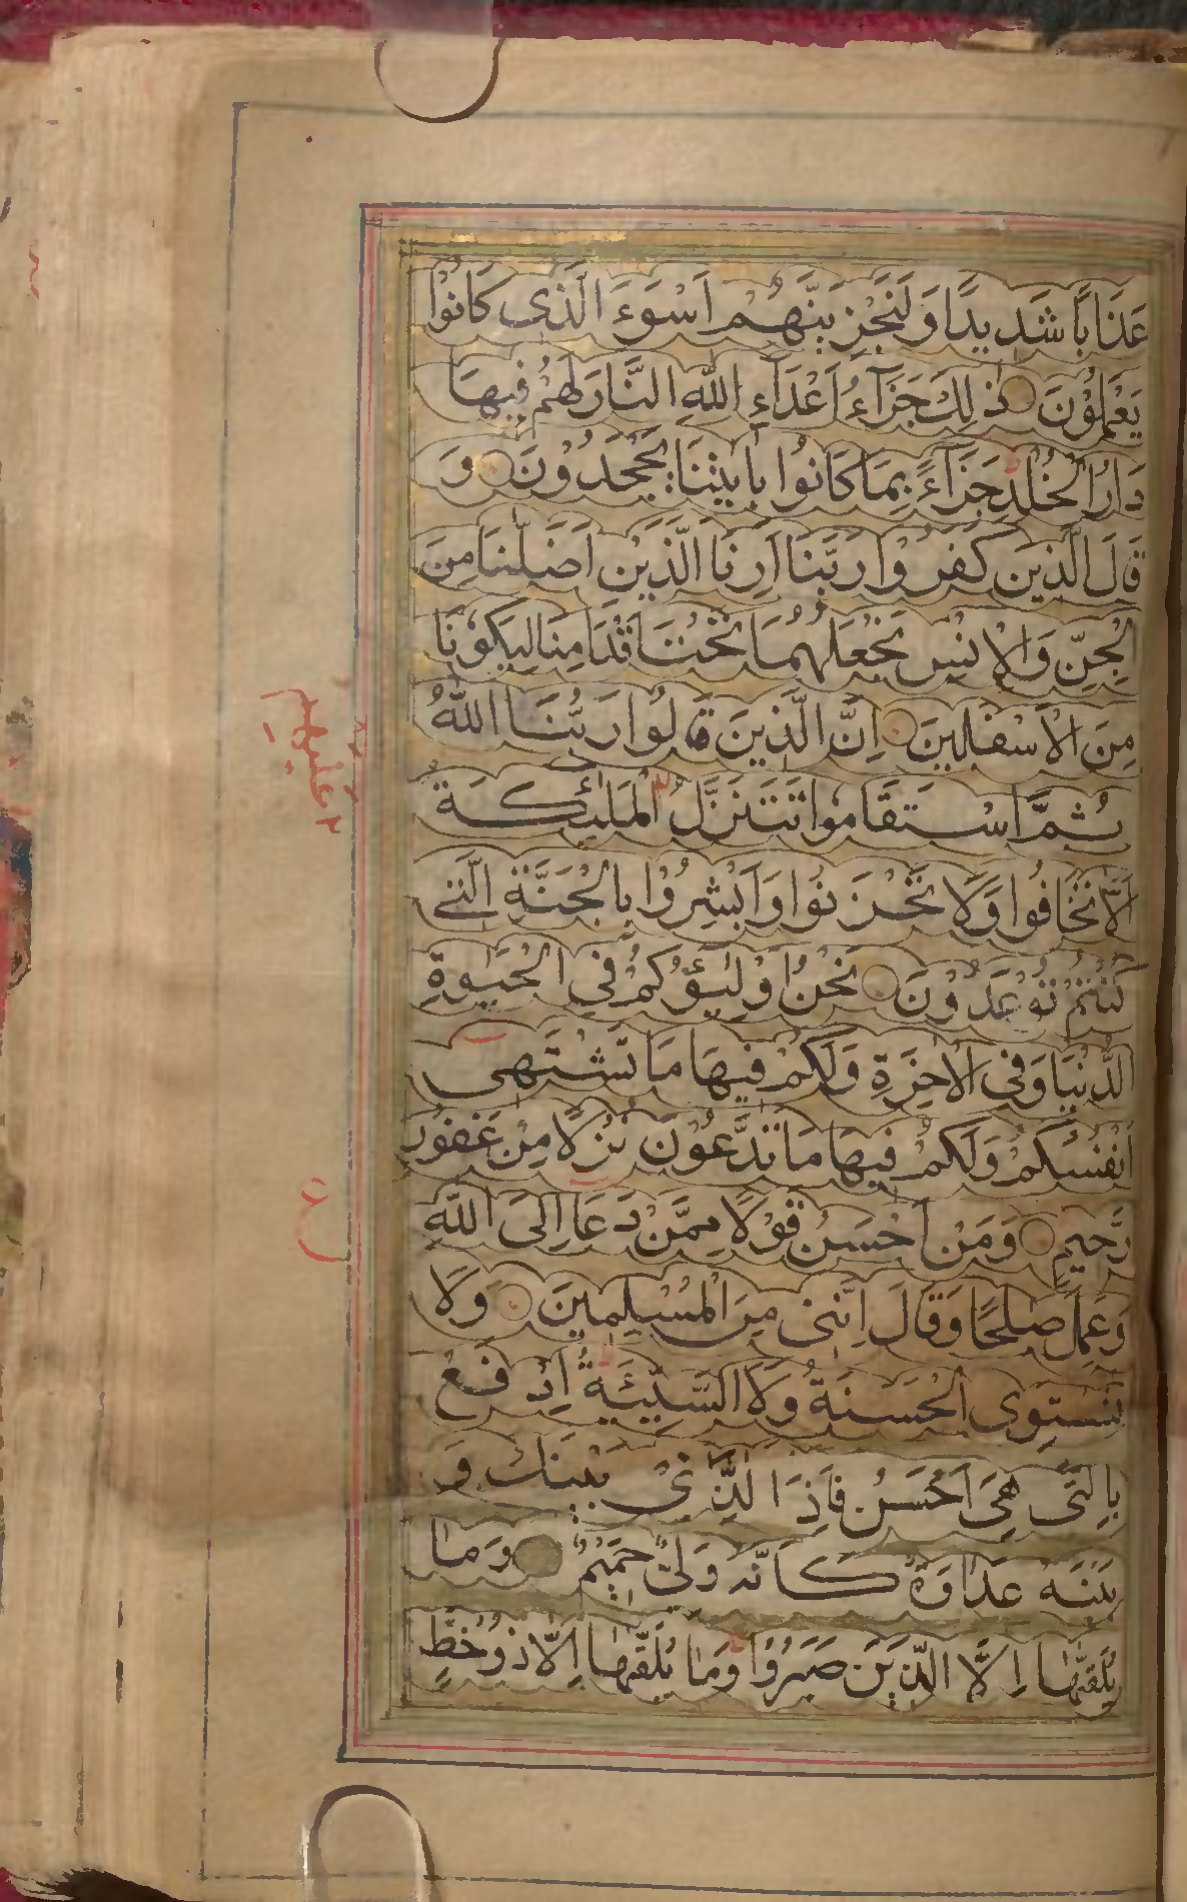 عَذَابًا شَدِيدًا وَلَنَجْزِيَنَّهُمْ اَسْوَءَ الَّذِى كَانُوْا
يَعْمَلُوْنَ ذٰلِكَ جَزَآءُ اَعْدَآءِ اللّٰهِ النَّارُ لَهُمْ فِيهَا
دَارُ الْخُلْدِ جَزَآءً بِمَا كَانُوا بِاٰيٰتِنَا يَجْحَدُوْنَ وَ
قَالَ الَّذِينَ كَفَرُوْا رَبَّنَا اَرِنَا الَّذَيْنِ اَضَلّٰنَا مِنَ
الْجِنِّ وَالْاِنْسِ نَجْعَلْهُمَا تَحْتَ اَقْدَامِنَا لِيَكُوْنَا
مِنَ الْاَسْفَلِينَ اِنَّ الَّذِينَ قَالُوا رَبُّنَا اللّٰهُ
ثُمَّ اسْتَقَامُوا تَتَنَزَّلُ الْمَلٰئِكَةُ
اَلَّا تَخَافُوا وَلَا تَحْزَنُوا وَاَبْشِرُوْا بِالْجَنَّةِ الَّتِى
كُنْتُمْ تُوْعَدُوْنَ نَحْنُ اَوْلِيٰٓؤُكُمْ فِي الْحَيٰوةِ
الدُّنْيَا وَفِى الْاٰخِرَةِ وَلَكُمْ فِيهَا مَا تَشْتَهِى
اَنْفُسُكُمْ وَلَكُمْ فِيهَا مَا تَدَّعُوْنَ نُزُلًا مِنْ غَفُورٍ
رَّحِيمٍ وَمَنْ اَحْسَنُ قَوْلًا مِمَّنْ دَعَا اِلَى اللّٰهِ
وَعَمِلَ صَالِحًا وَقَالَ اِنَّنِى مِنَ الْمُسْلِمِينَ وَلَا
تَسْتَوِى الْحَسَنَةُ وَلَا السَّيِّئَةُ اِدْفَعْ
بِالَّتِى هِىَ اَحْسَنُ فَاِذَا الَّذِى بَيْنَكَ وَ
بَيْنَهُ عَدَاوَةٌ كَاَنَّهُ وَلِىٌّ حَمِيْمٌ وَمَا
يُلَقّٰهَا اِلَّا الَّذِيْنَ صَبَرُوْا وَمَا يُلَقّٰهَا اِلَّا ذُوْحَظٍّ